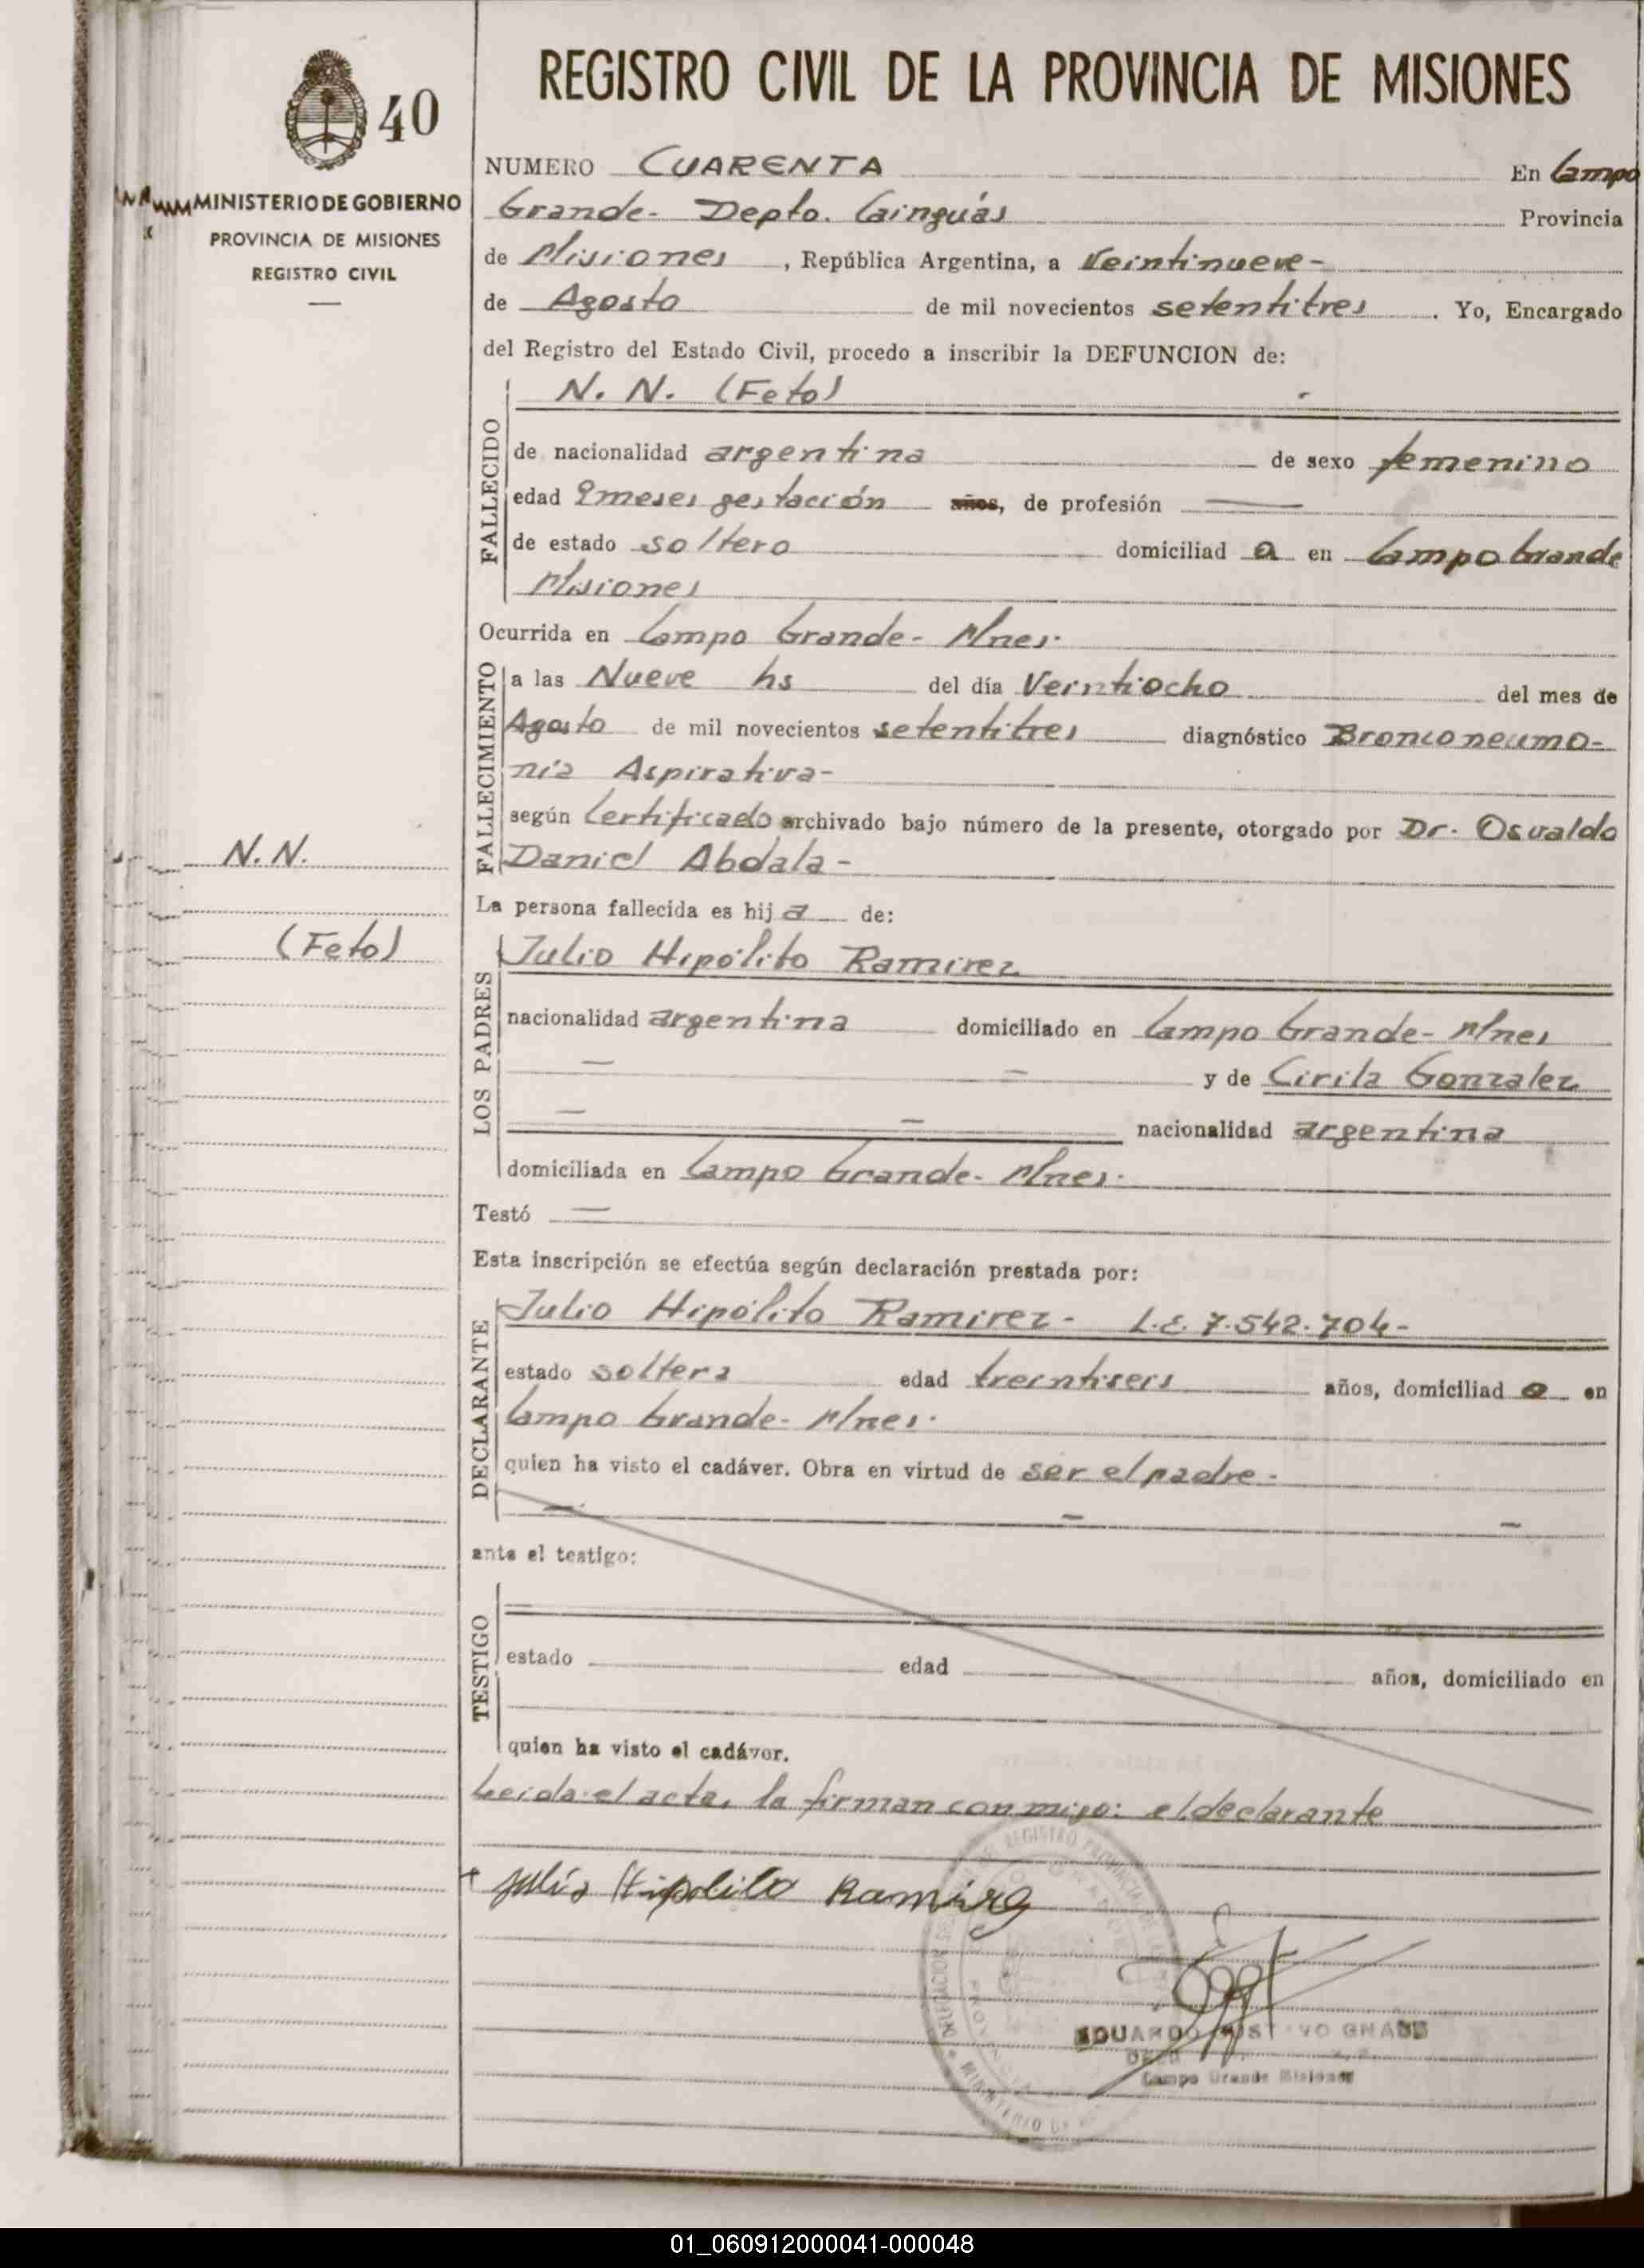 40
MINISTERIO DE GOBIERNO
PROVINCIA DE MISIONES
REGISTRO CIVIL
N. N.
(Feto)
REGISTRO CIVIL DE LA PROVINCIA DE MISIONES
NUMERO CUARENTA En Campo
Grande- Depto. Cainguás Provincia
de Misiones, República Argentina, a Veintinueve-
de Agosto de mil novecientos setentitres. Yo, Encargado
del Registro del Estado Civil, procedo a inscribir la DEFUNCION de:
FALLECIDO
N. N. (Feto)
de nacionalidad argentina de sexo femenino
edad 9 meses gestación años, de profesión —
de estado soltero domiciliad a en Campo Grande
Misiones
Ocurrida en Campo Grande- Mnes.
FALLECIMIENTO
a las Nueve hs del día Veintiocho del mes de
Agosto de mil novecientos setentitres diagnóstico Bronconeumo-
nia Aspirativa-
según Certificado archivado bajo número de la presente, otorgado por Dr. Osvaldo
Daniel Abdala-
La persona fallecida es hij a de:
LOS PADRES
Julio Hipólito Ramirez
nacionalidad argentina domiciliado en Campo Grande- Mnes
— — y de Cirila Gonzalez
— — nacionalidad argentina
domiciliada en Campo Grande- Mnes.
Testó —
Esta inscripción se efectúa según declaración prestada por:
DECLARANTE
Julio Hipólito Ramirez- L.E. 7.542.704-
estado soltera edad treintiseis años, domiciliad o en
Campo Grande- Mnes.
quien ha visto el cadáver. Obra en virtud de ser el padre-
— — —
ante el testigo:
TESTIGO
estado edad años, domiciliado en
quien ha visto el cadáver.
Leida el acta, la firman conmigo: el declarante
Julio Hipolito Ramirez
EDUARDO
Campo Grande Misiones
01_060912000041-000048